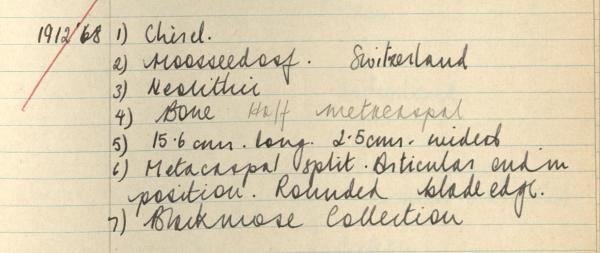 1912'68 1) Chisel.
2) Moosseedorf. Switzerland
3) Neolithic
4) Bone Half metacarpal
5) 15.6 cms. long. 2.5cms. widest
6) Metacarpal split. Articular end in
position. Rounded blade edge.
7) Blackmose Collection